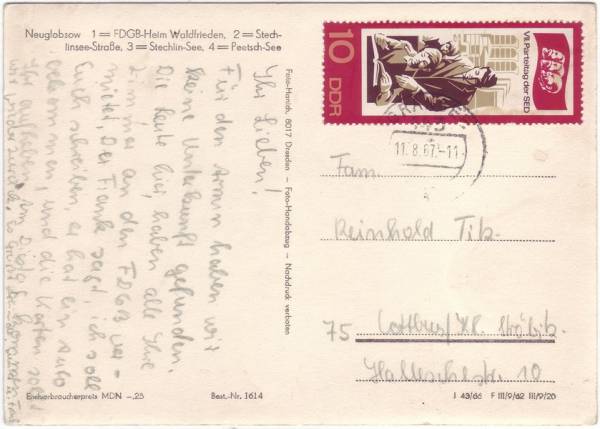 Neuglobsow 1 = FDGB-Heim Waldfrieden, 2 = Stech-
linsee-Straße, 3 = Stechlin-See, 4 = Peetsch-See
Ihr Lieben!
Für den haben wir
keine Unterkunft gefunden.
Die Leute hier, haben alle Ihre
Zimmer an den FDGB ver-
mietet. Der Frank sagt, ich soll
Euch schreiben, er hat ein Auto
bekommen, und die Karten sollt
Ihr aufheben.
Foto-Hanich, 8017 Dresden – Foto-Handabzug – Nachdruck verboten
Endverbraucherpreis MDN –,25
Best.-Nr. 1614
10
DDR
VII. Parteitag der SED
11.8.67.-11
Fam.
Reinhold
75 Cottbus/
Hallesche str. 10
I 43/66 F III/9/62 III/9/20